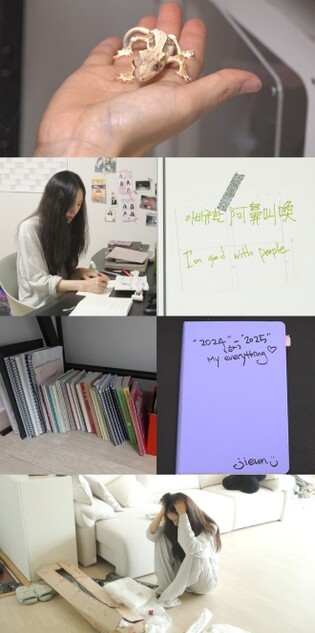 아비규환 阿鼻叫喚
I'm good with people
"2024" - "2025"
My everything♡
jieun